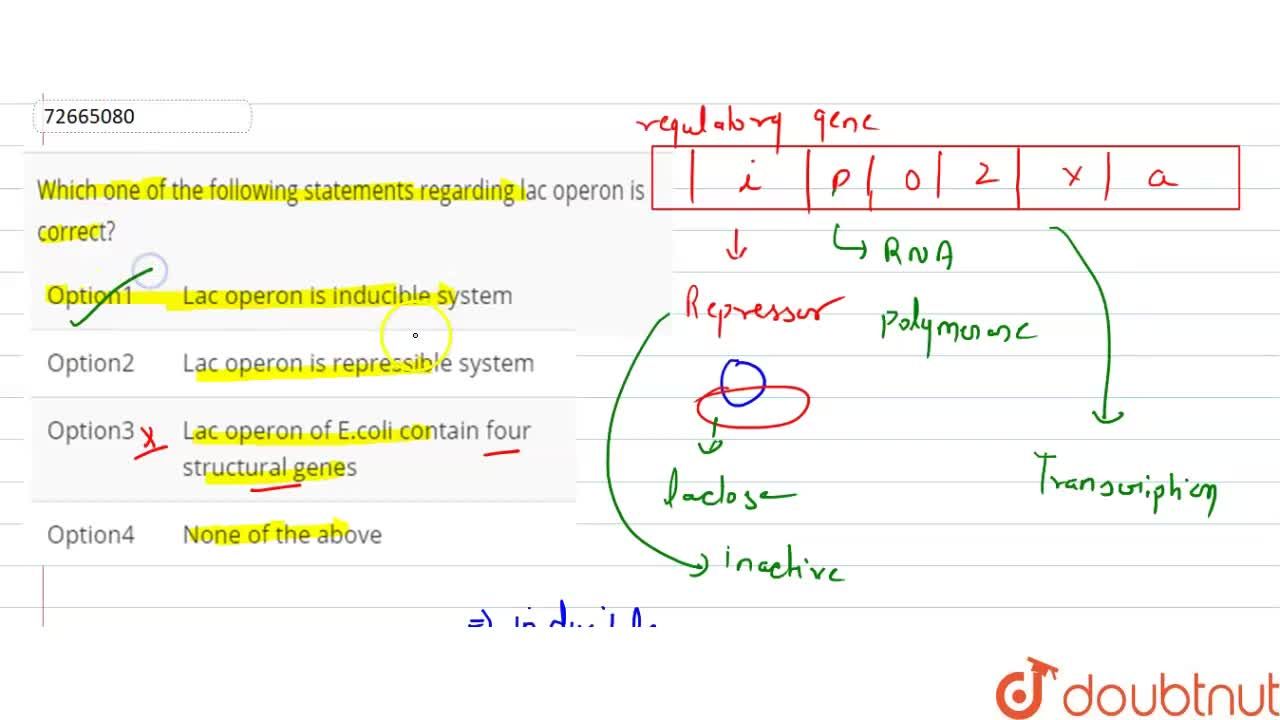 72665080
regulatory gene
i p o z x a
Which one of the following statements regarding lac operon is
correct?
RNA
Polymerase
Repressor
Option1 Lac operon is inducible system
Option2 Lac operon is repressible system
Option3 x Lac operon of E.coli contain four
structural genes
lactose
Transcription
Option4 None of the above
inactive
=) inducible
doubtnut